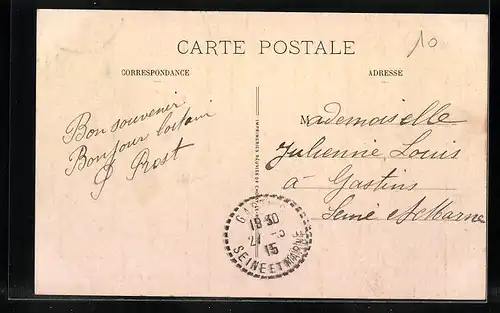 CARTE POSTALE
10
CORRESPONDANCE
ADRESSE
Bon souvenir
Bonjour lointain
P Rost
Mademoiselle
Julienne Louis
à Gastins
Seine et Marne
19 30
21 -5
15
SEINE ET MARNE
IMPRIMERIES RÉUNIES DE